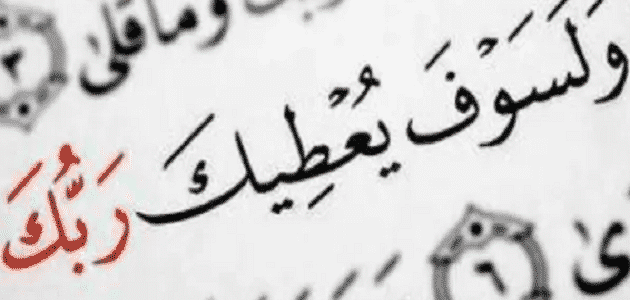 ربك وما قلى ٣
وَلَسَوْفَ يُعْطِيكَ رَبُّكَ
ى ٦